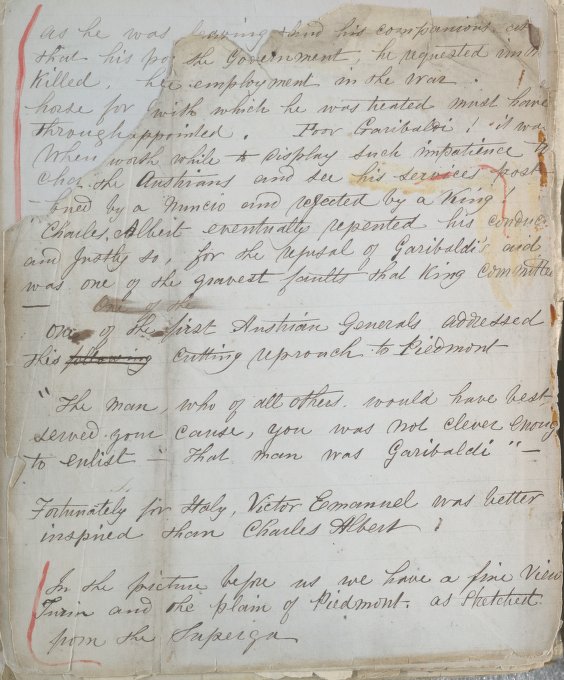 as he was leaving and his companions at
that his po the Government, he requested imm
Killed, her employment in the War.
horse for with which he was treated must have
through appointed. Poor Garibaldi! it was
When worth while to display such impatience to
Chas. the Austrians and see his services post
- oned by a Nuncio and rejected by a King
Charles Albert eventually repented his conduc
and justly so, for the refusal of Garibaldi's aid
was one of the gravest faults that King committed
— One of the
one of the first Austrian Generals addressed
this following cutting reproach to Piedmont
"The man, who of all others would have best
served your cause, you was not clever enoug
to enlist – That man was Garibaldi" —
Fortunately for Italy, Victor Emanuel was better
inspired than Charles Albert!
In the picture before us we have a fine View
Turin and the plain of Piedmont, as Sketched
from the Superga